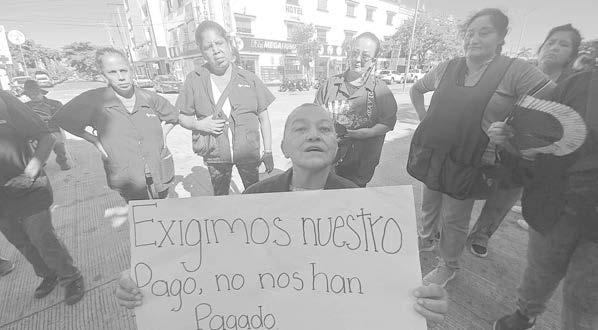 HOTEL
MEGA
Exigimos nuestro
Pago, no nos han
Pagado